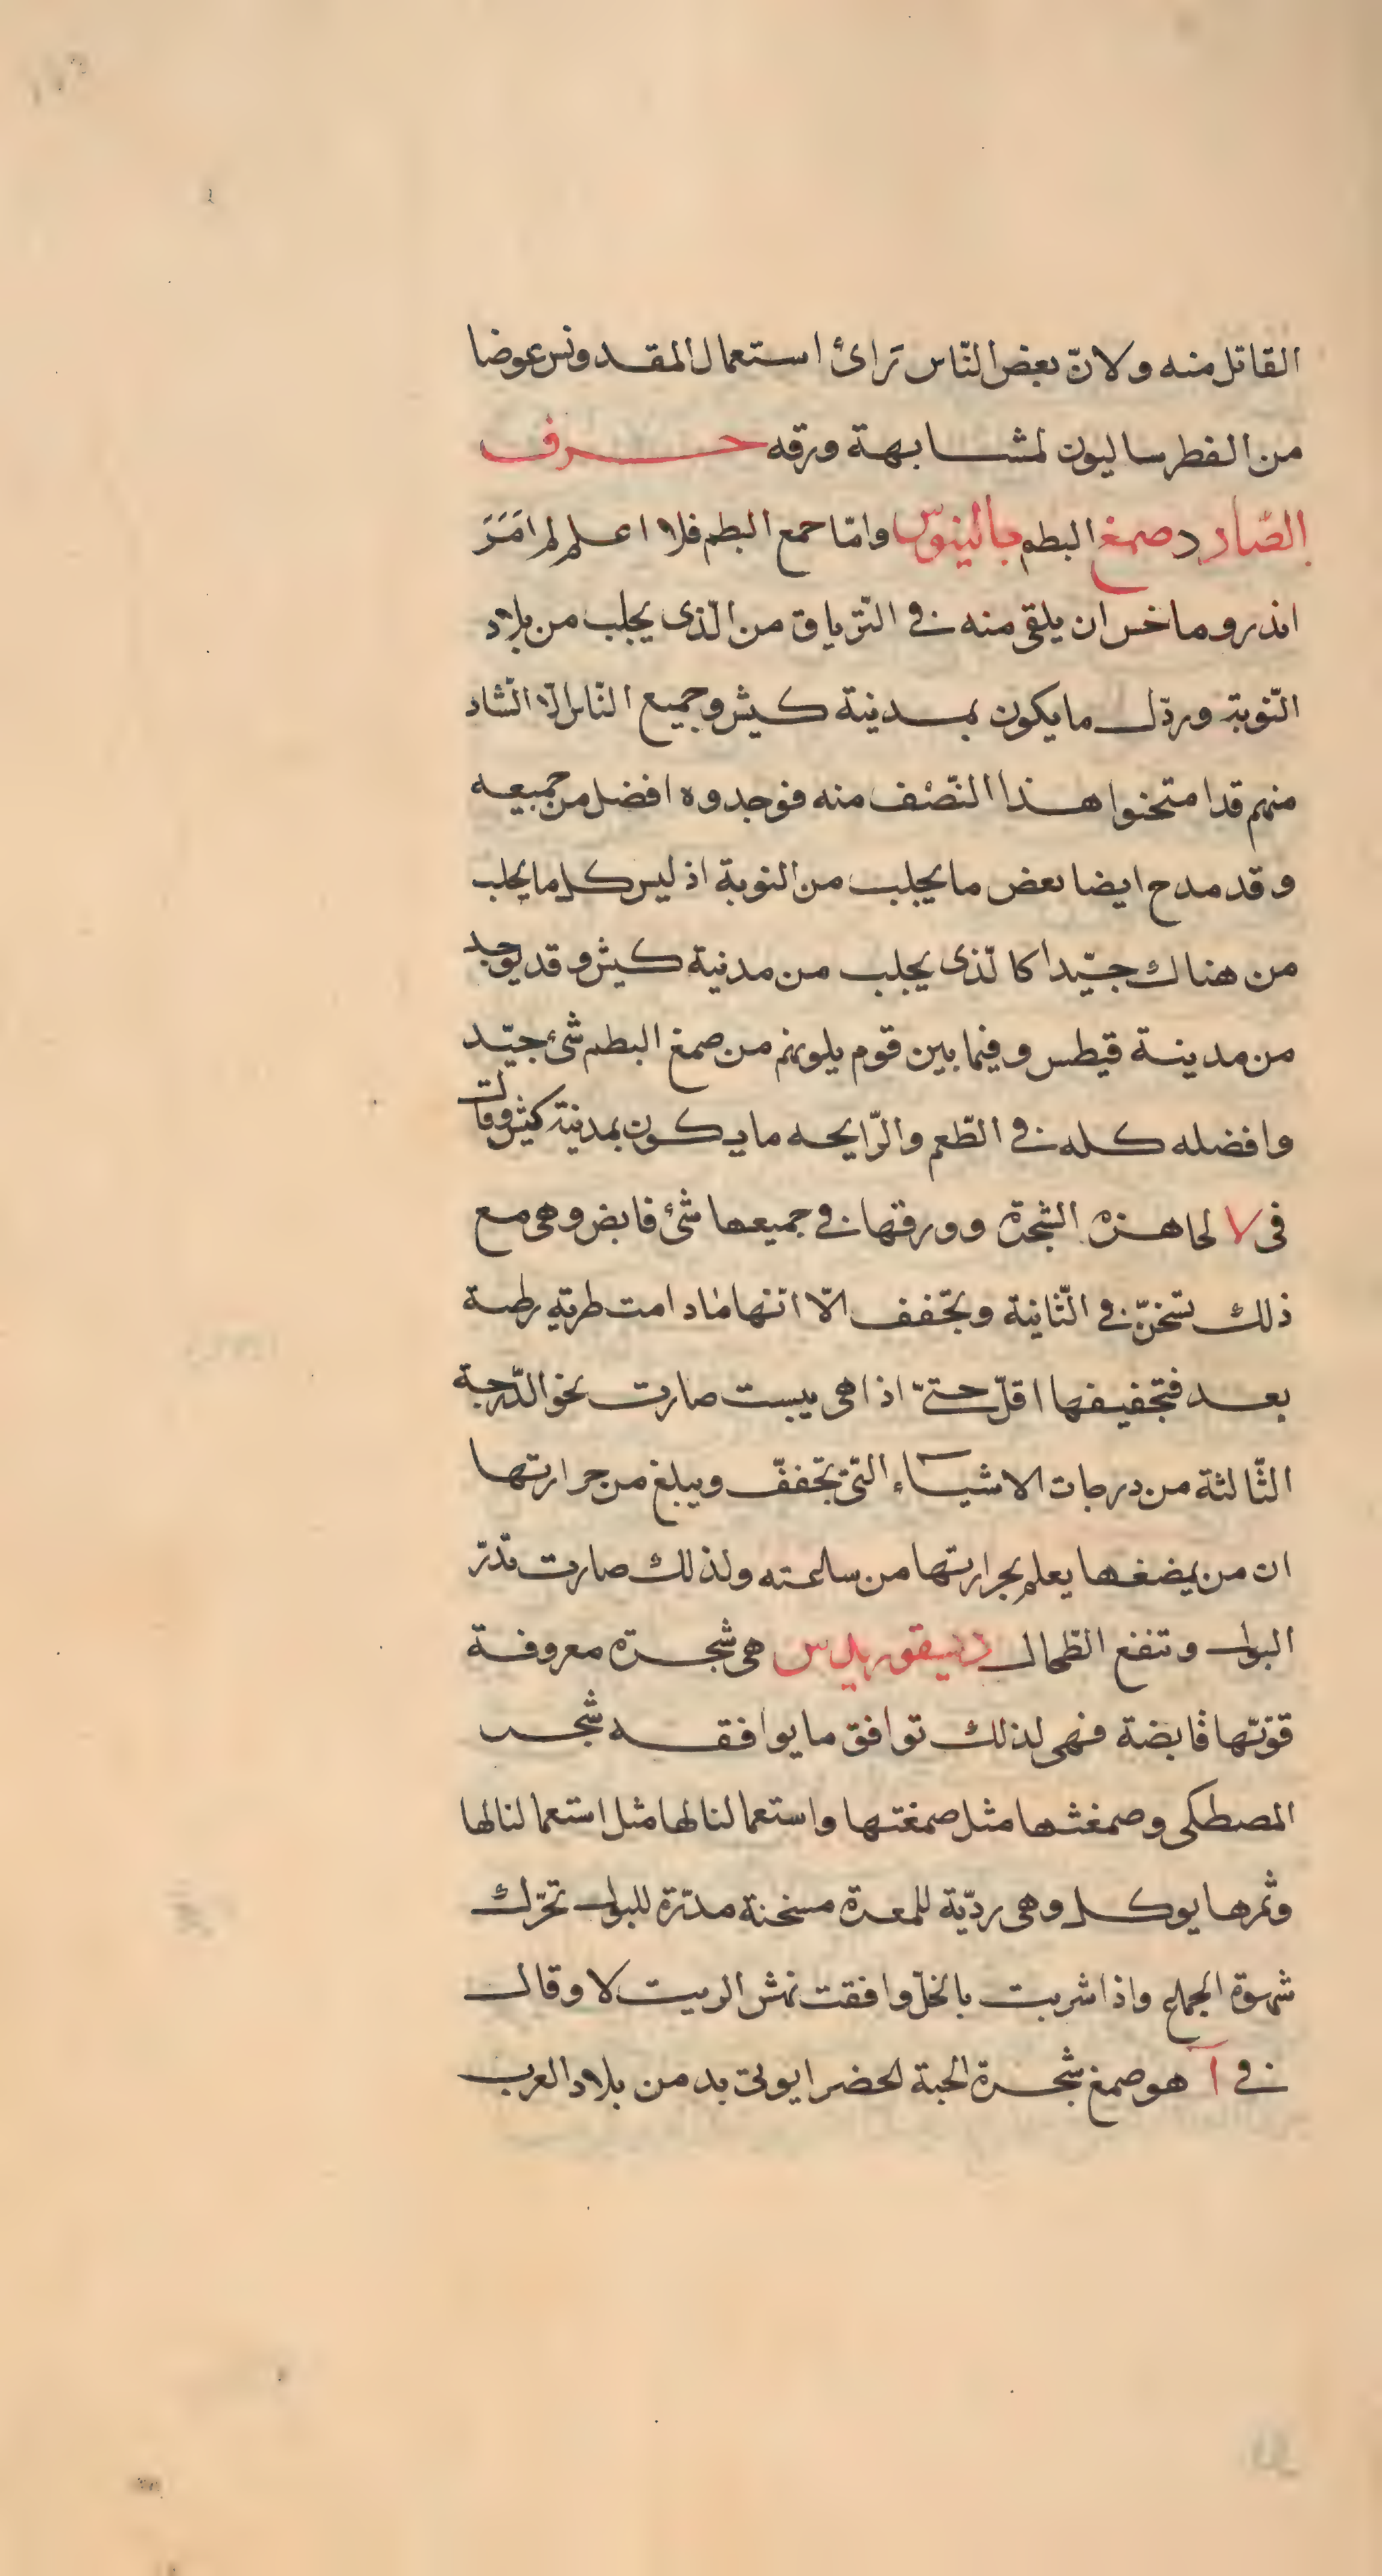 القاتل منه ولانّ بعض النّاس تَرائ استعمال المقدونس عوضا
من الفطرساليون لمشابهة ورقه حرف
الصّاد صمغ البطم جالينوس وامّا صمع البطم فلا اعلم لم امَرَ
اندروماخس ان يلقى منه في التّرياق من الّذى يجلب من بلاد
النّوبة وردّل ما يكون بمدينة كيش وجميع النّاس الّا الشاد
منهم قد امتحنوا هذا النّصْف منه فوجدوه افضل من جميعه
وقد مدح ايضا بعض ما يجلب من النوبة اذ ليس كل ما يجلب
من هناك جيّدا كا لّذى يجلب من مدنية كيش وقد يوجد
من مدينة قيطس وفيما بين قوم يلونهم من صمغ البطم شئ جيّد
وافضله كله في الطّعم والرّايحه ما يكون بمدنية كيش وقالت
فى لا لحا هذه الشجرة وورقها في جميعها شئ قابض وهى مع
ذلك تسخنّ في الثّانية وتجّفف الّا انّها مادامت طريّه رطبة
بعد فتجفيفها اقلّ حتىّ اذا هى يبست صارت نحو الدّرجة
الثّالثة من درجات الاشيآء التّى تجففّ ويبلغ من حرارتها
ان من يمضغها يعلم بحرارتها من سلعته ولذلك صارت تدرّ
البول وتنفع الطّحال ديسقوريدس هى شجره معروفة
قوّتها قابضة فهى لذلك توافق ما يوافقه شجر
المصطكى وصمغثها مثل صمغتها واستعمالنا لها مثل استعمالنا لها
وثمرها يوكل وهى رديّة للمعدة مسخنة مدرّة للبول تحرّك
شهوة الجماع واذا شربت بالخلّ وافقت نهش الرىيت لا وقال
في آ هو صمغ شجرة الحبة لحضرا يوتى به من بلاد العرب